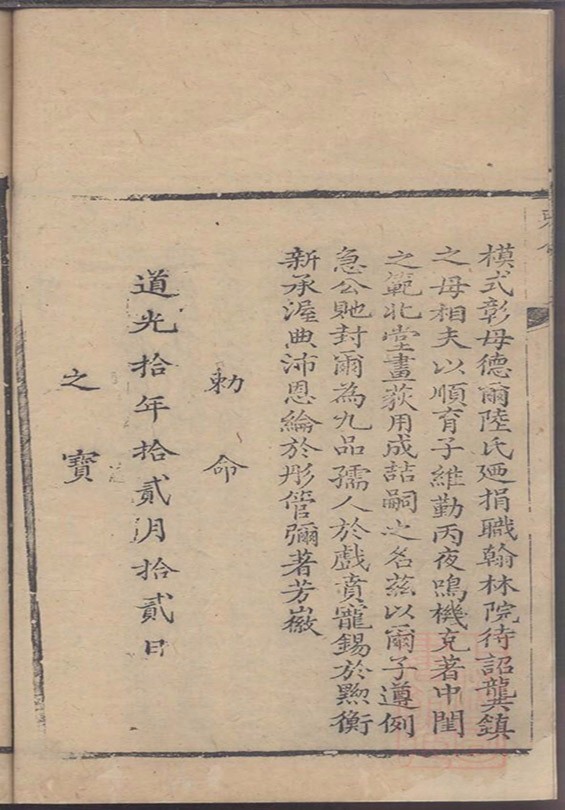 模式彰母德爾陸氏廼捐職翰林院待詔龔鎮
之母相夫以順育子維勤丙夜鳴機克著中閨
之範北堂畫荻用成喆嗣之名兹以爾子遵例
急公貤封爾為九品孺人於戲賁寵錫於懃衡
新承渥典沛恩綸於彤管彌著芳嶶
勅命
道光拾年拾貳月拾貳日
之寶